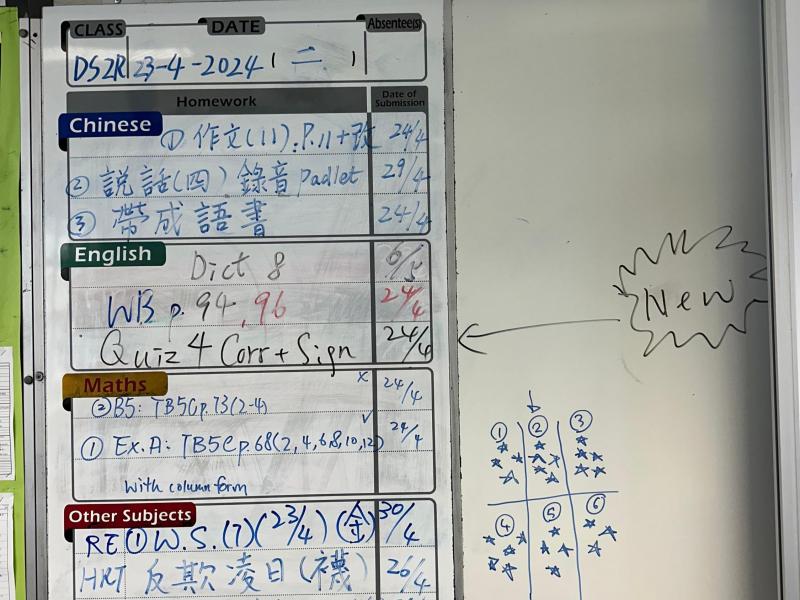 CLASS DATE Absentee(s)
DS2R 23-4-2024 (二)
Homework Date of Submission
Chinese
① 作文(11):P.11+改 24/4
② 説話(四)錄音 Padlet 29/4
③ 帶成語書 24/4
English
Dict 8 6/5
WB p. 94, 96 24/4
Quiz 4 Corr + Sign 24/4
Maths
②B5: TB5C p.73(2-4) x 24/4
① Ex.A: TB5C p.68(2,4,6,8,10,12) v 24/4
with column form
Other Subjects
RE ① W.S.(7)(23/4)(金) 30/4
HRT 反欺凌日(襪) 26/4
New
① ② ③
④ ⑤ ⑥